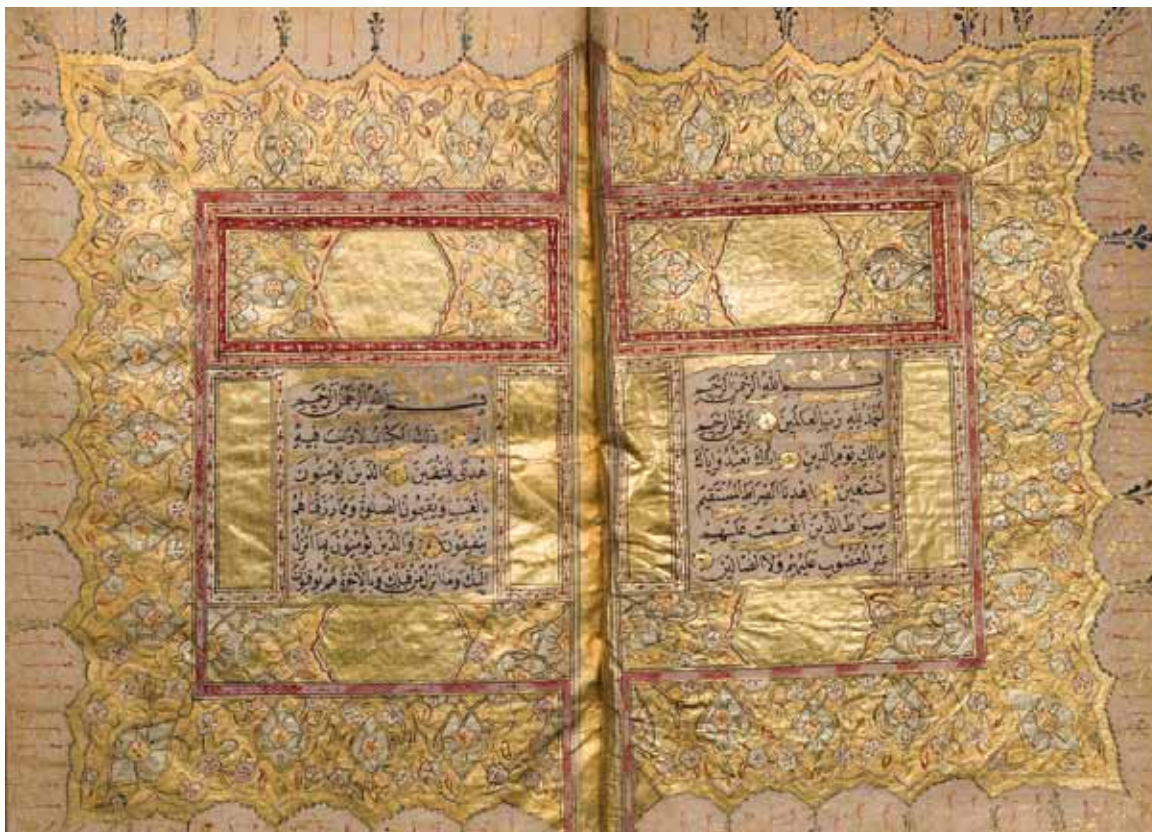 بسم الله الرحمن الرحيم
الحمد لله رب العالمين الرحمن الرحيم
مالك يوم الدين اياك نعبد واياك
نستعين اهدنا الصراط المستقيم
صراط الذين انعمت عليهم
غير المغضوب عليهم ولا الضالين
بسم الله الرحمن الرحيم
الم ذلك الكتاب لا ريب فيه
هدى للمتقين الذين يؤمنون
بالغيب ويقيمون الصلوة ومما رزقناهم
ينفقون والذين يؤمنون بما انزل
اليك وما انزل من قبلك وبالاخرة هم يوقنون